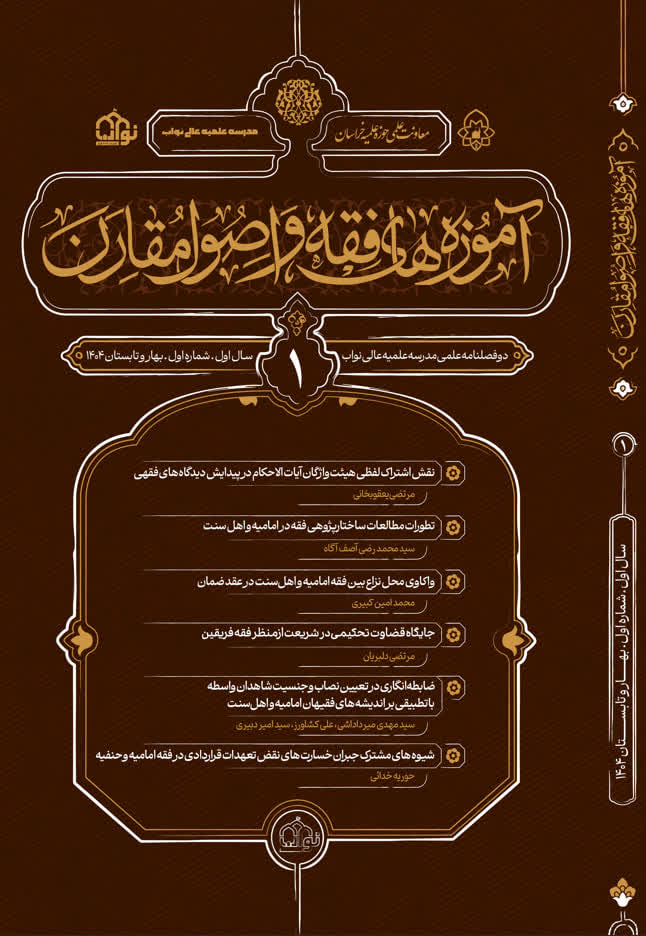 معاونت علمی حوزه علمیه خراسان
مدرسه علمیه عالی نواب
نواب
آموزه های فقه و اصول مقارن
دوفصلنامه علمی مدرسه علمیه عالی نواب
سال اول . شماره اول . بهار و تابستان ۱۴۰۴
۱
نقش اشتراک لفظی هیئت واژگان آیات الاحکام در پیدایش دیدگاه های فقهی
مرتضی یعقوبخانی
تطورات مطالعات ساختارپژوهی فقه در امامیه و اهل سنت
سید محمد رضی آصف آگاه
واکاوی محل نزاع بین فقه امامیه و اهل سنت در عقد ضمان
محمد امین کبیری
جایگاه قضاوت تحکیمی در شریعت از منظر فقه فریقین
مرتضی دلیریان
ضابطه انگاری در تعیین نصاب و جنسیت شاهدان واسطه
با تطبیقی بر اندیشه های فقیهان امامیه و اهل سنت
سید مهدی میرداداشی، علی کشاورز، سید امیر دبیری
شیوه های مشترک جبران خسارت های نقض تعهدات قراردادی در فقه امامیه و حنفیه
حوریه خدائی
نواب
آموزه های فقه و اصول مقارن
۱
سال اول . شماره اول . بهار و تابستان ۱۴۰۴